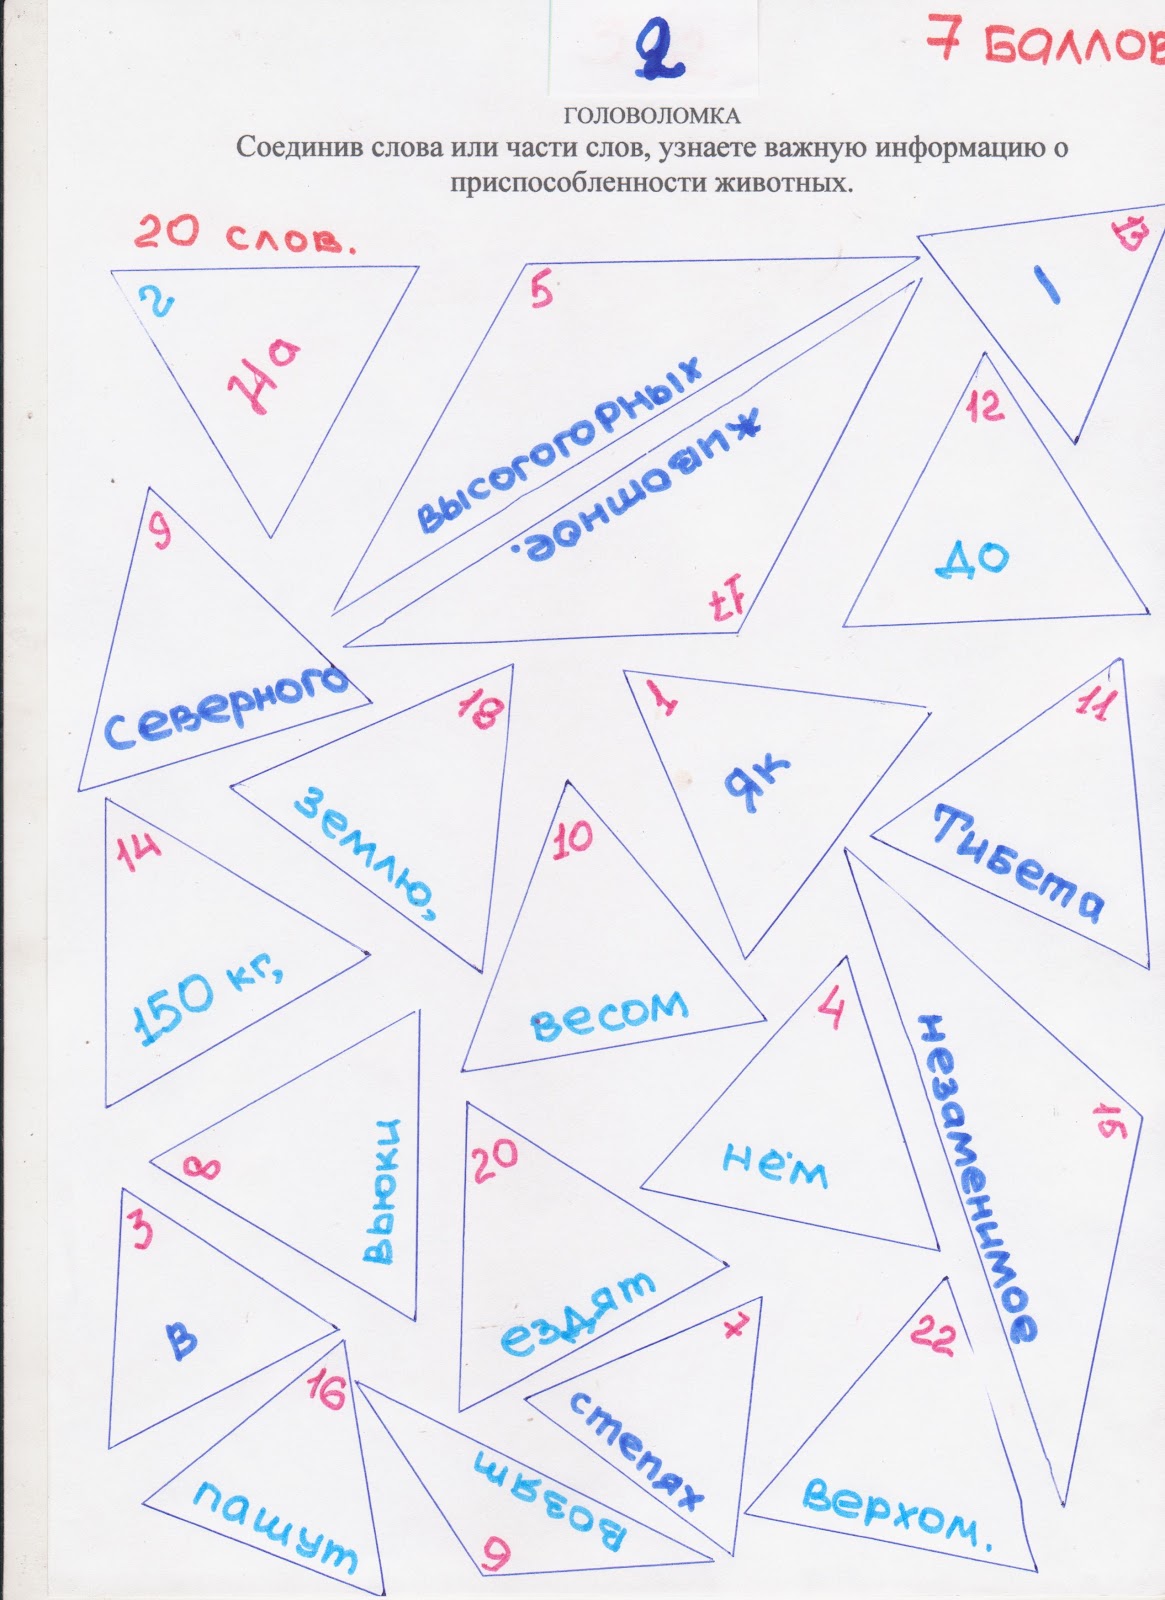 2
7 БАЛЛОВ
ГОЛОВОЛОМКА
Соединив слова или части слов, узнаете важную информацию о
приспособленности животных.
20 слов.
2
На
5
высогогорных
13
1
12
до
животное.
17
9
северного
18
землю,
1
Як
11
Тибета
14
150 кг,
10
весом
4
нём
незаменимое
15
8
вьюки
20
ездят
3
в
7
степях
22
верхом.
16
пашут
возят
6